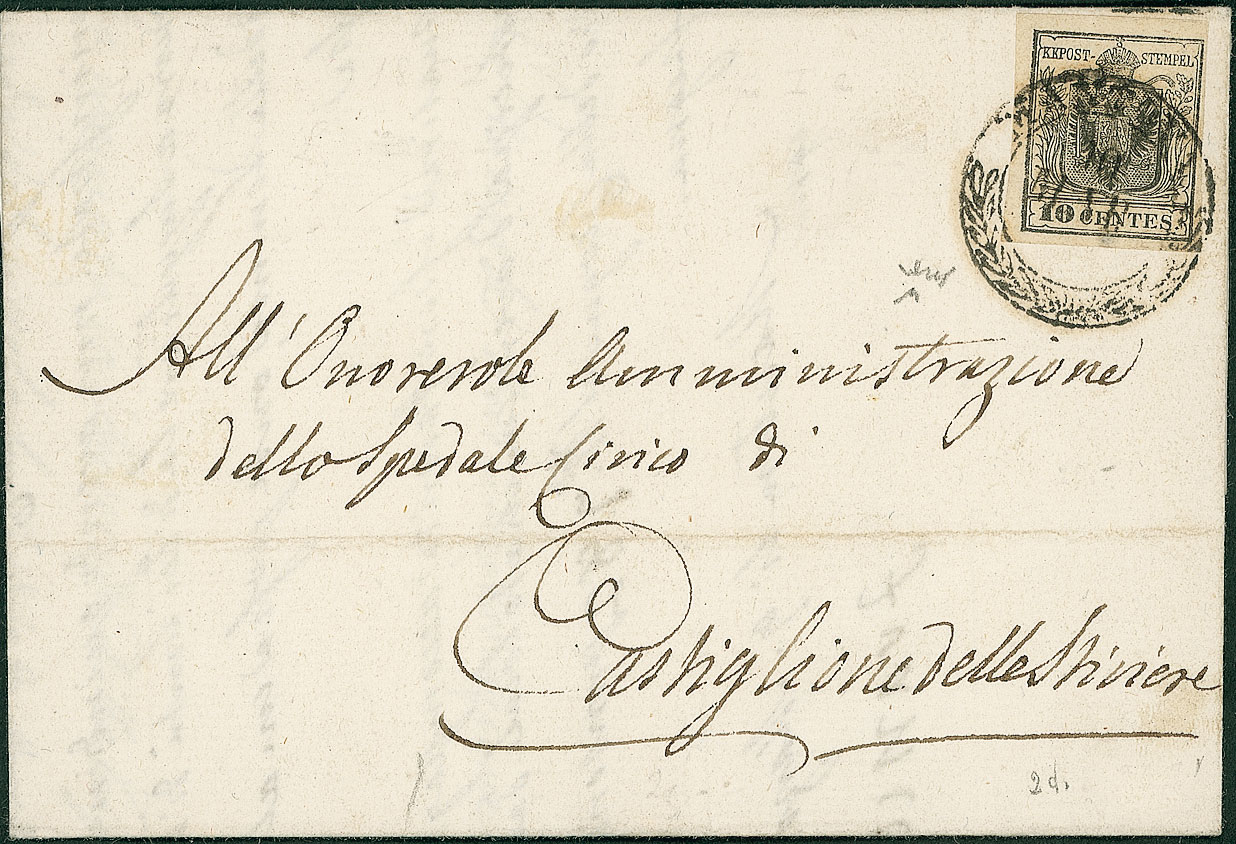 KKPOST-STEMPEL
10 CENTES.
All'Onorevole Amministrazione
dello Spedale Civico di
Castiglione delle Stiviere
2d.